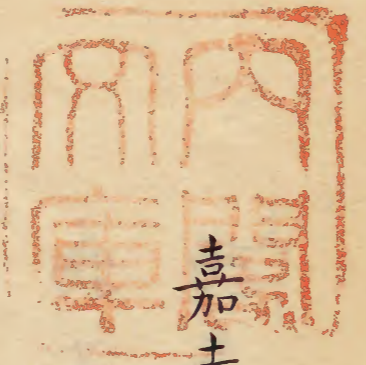 内閣
文庫
嘉